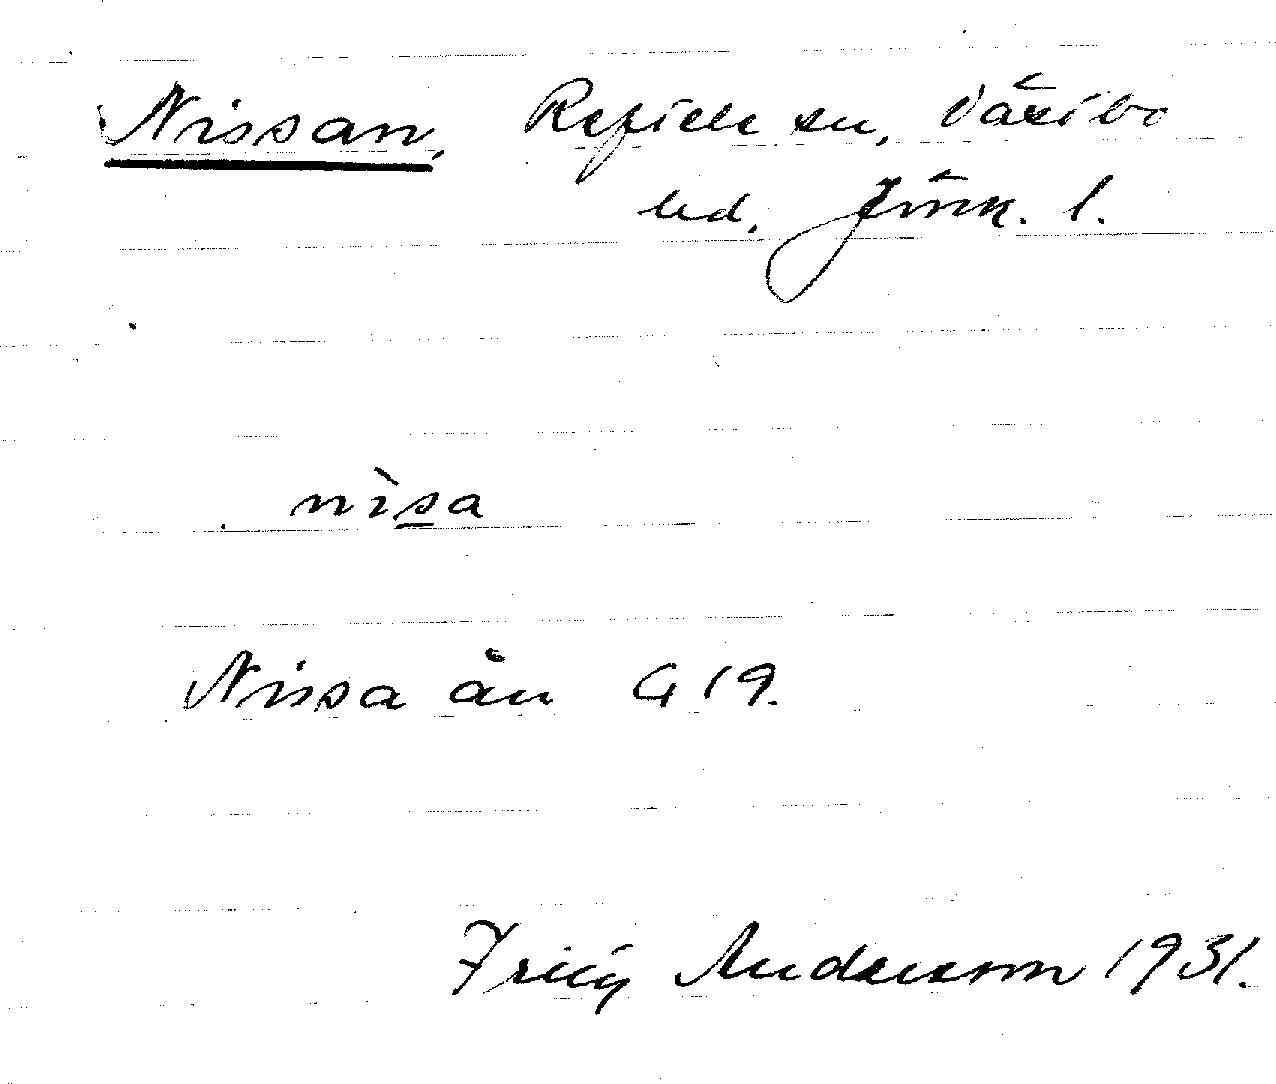 Nissan, Reftele sn, Västbo
hd, Jönk. l.
nìsa
Nissa ån G 19.
Andersson 1931.